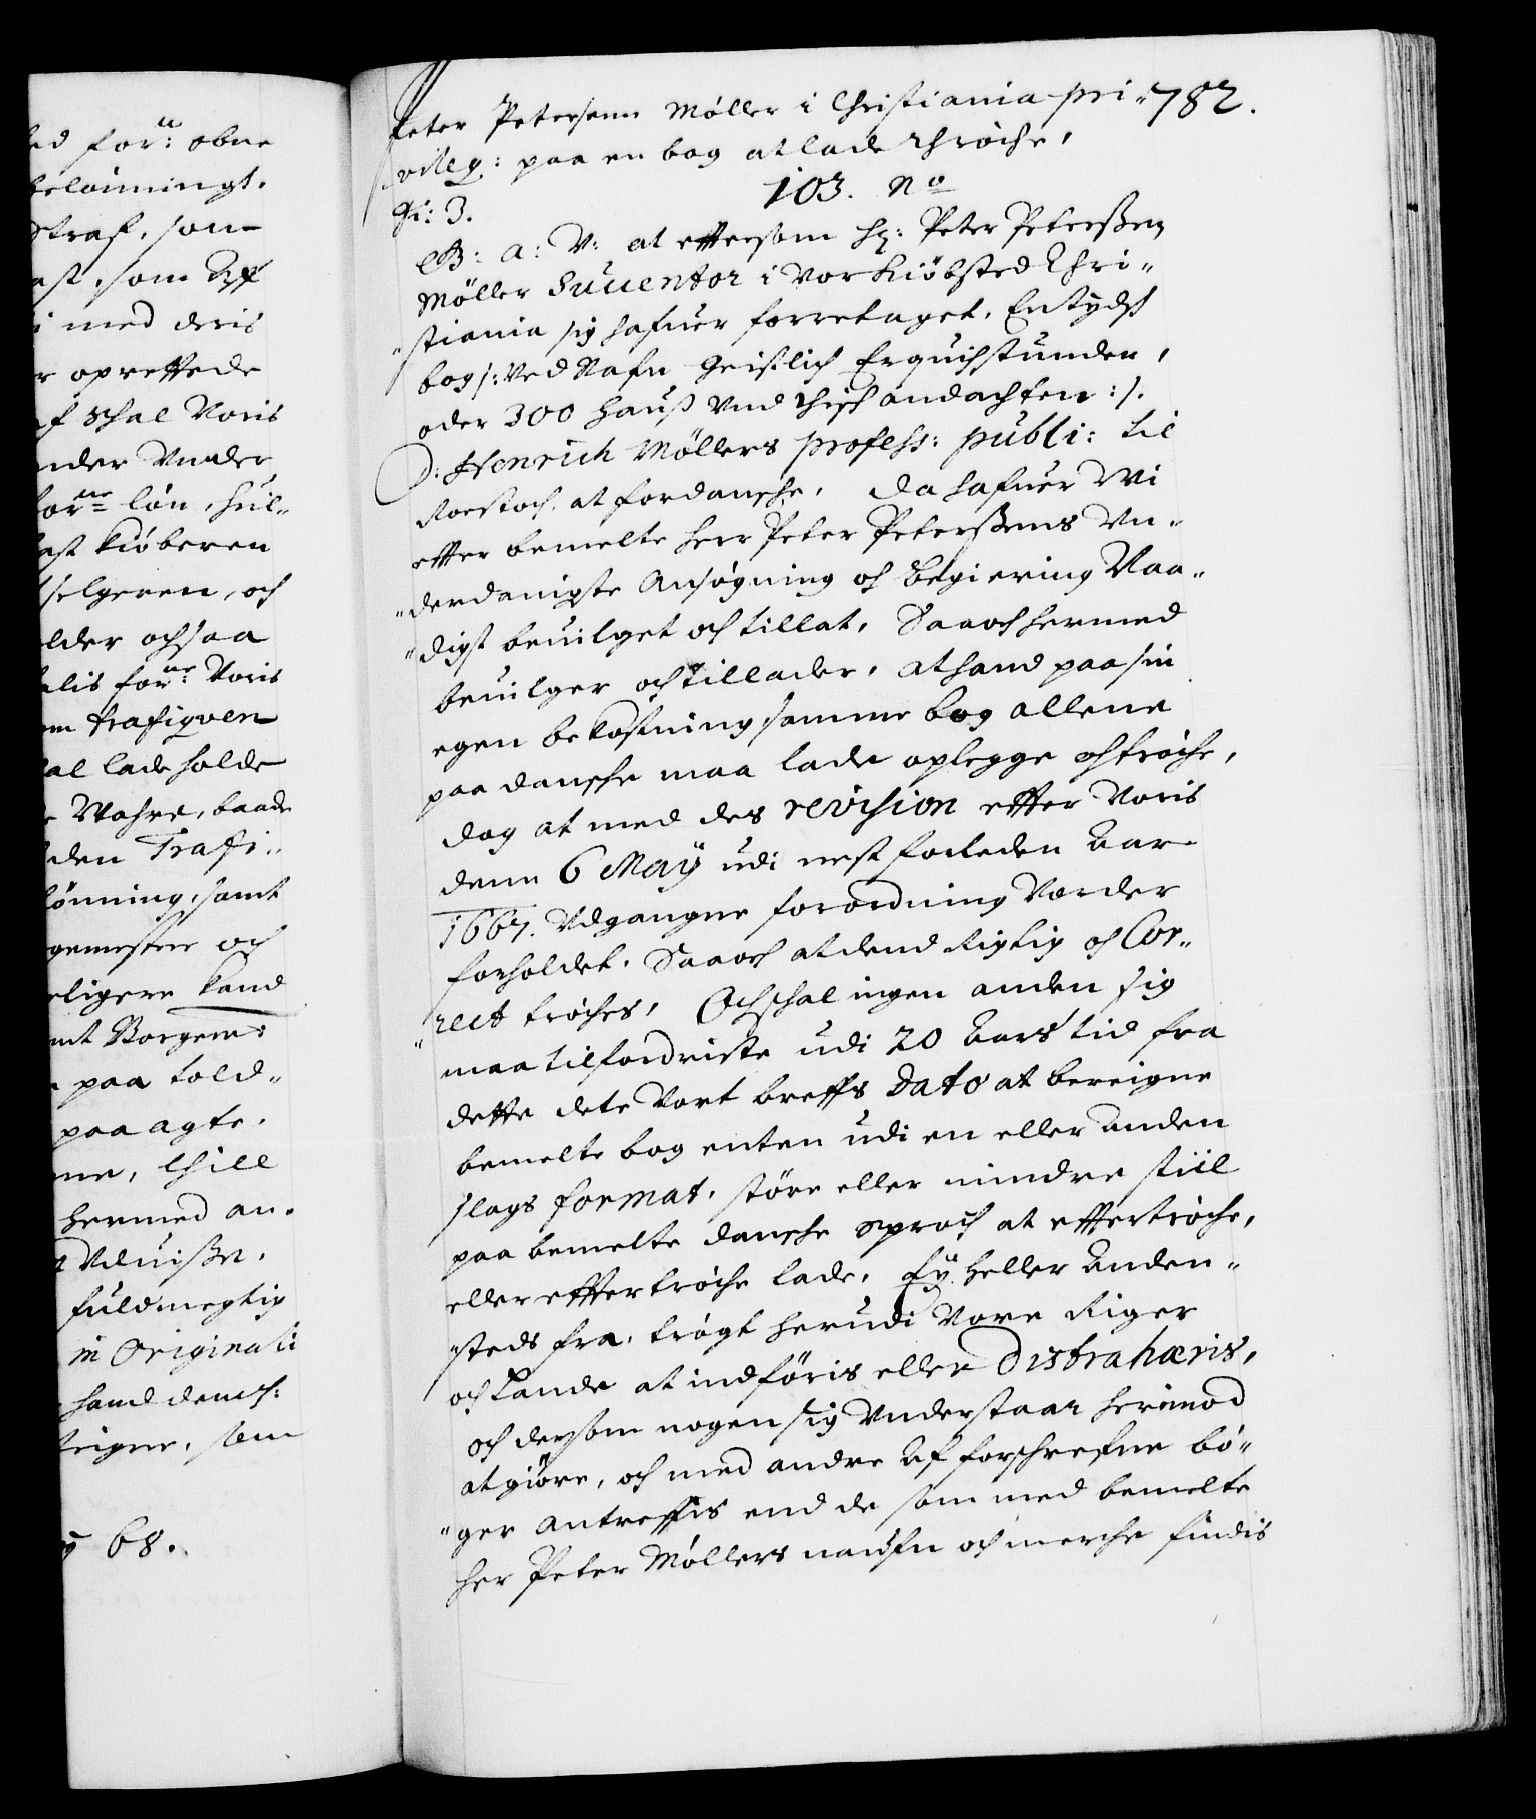 ed for:ne obne
belönningt.
Straf, som
ast, som Aff
i med deris
r oprettede
af schal Voris
nder Vnder
for:ne lön, huil-
ast Kiöberen
selgeren, och
elder ochsaa
elis for:ne Voris
em trafiqven
al lade holde
e Wahre, baade
den Trafi-
lönning, samt
gemester och
eligere Kand
mt Borgem:
n paa told-
paa agte.
me, Chill
hermed an-
Vduißer.
fuldmegtig
in Originali
hand dennf:
trigne, som
68.
Peter Petersenn Møller i Christiania pri-
782.
vileg: paa en bog at lade thrÿche,
103. No
Fr: 3.
G: A: V: at effterssom Hr: Peter Peterßen
Möller Succentor i Vor Kiöbsted Chri-
stiania sig hafuer forretaget, En Tydsch
bog /: Ved Nafn Geistlich Erquichstunder,
oder 300 Hauß Vnd Thisch andachten :/.
D: Henrich Möllers profess: publi: til
Rostoch, at fordansche, Da hafuer Wi
effter bemelte herr Peter Peterßens Vn-
derdanigste Ansøgning och Begiering Naa-
digst beuilget och tillat, Saa och hermed
beuilger och tillader, at hand paa sin
egen bekostning samme bog allene
paa dansche maa lade oplegge och tröche,
dog at med des revision effter Voris
denn 6 Maÿ udi nest forleden Aar
1667. Vdgangne forordning Vorder
forholdet. Saa och at dend Rigtig och Cor-
rect tröches, Och schal ingen anden sig
maa tilfordriste udi 20 Aars tid fra
dette dete Vort breffs Dato at bereigne
bemelte bog enten udi en eller anden
slags format, störe eller mindre stiil
paa bemelte dansche sproch at effter tröche,
eller effter tröche lade, Eÿ heller Anden-
steds fra, trögt her udi Vore Riger
och Lande at indföris eller Distrahæris,
och dersom nogen sig Vnderstaar herimod
at giöre, och med andre Af forschrefne bö-
ger antreffis end de som med bemelte
her Peter Møllers naufn och merche findis